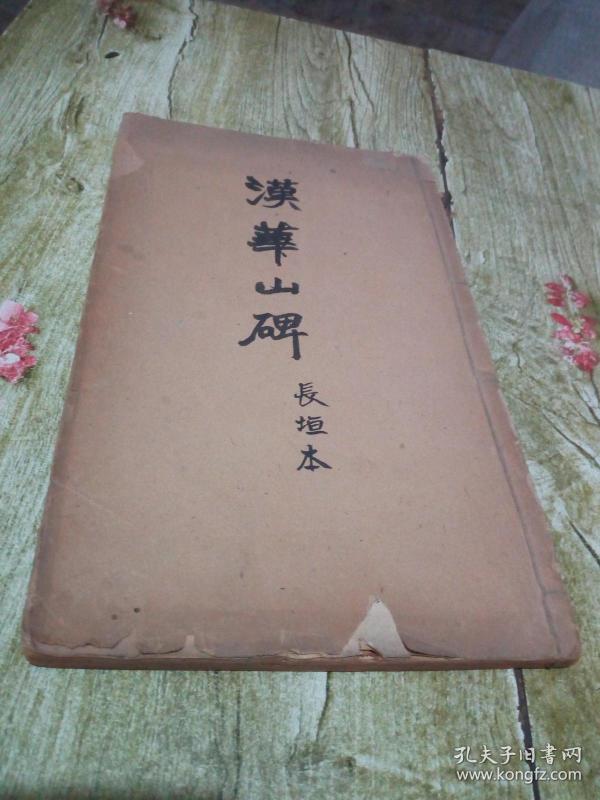 漢華山碑
長垣本
孔夫子旧書网
www.kongfz.com